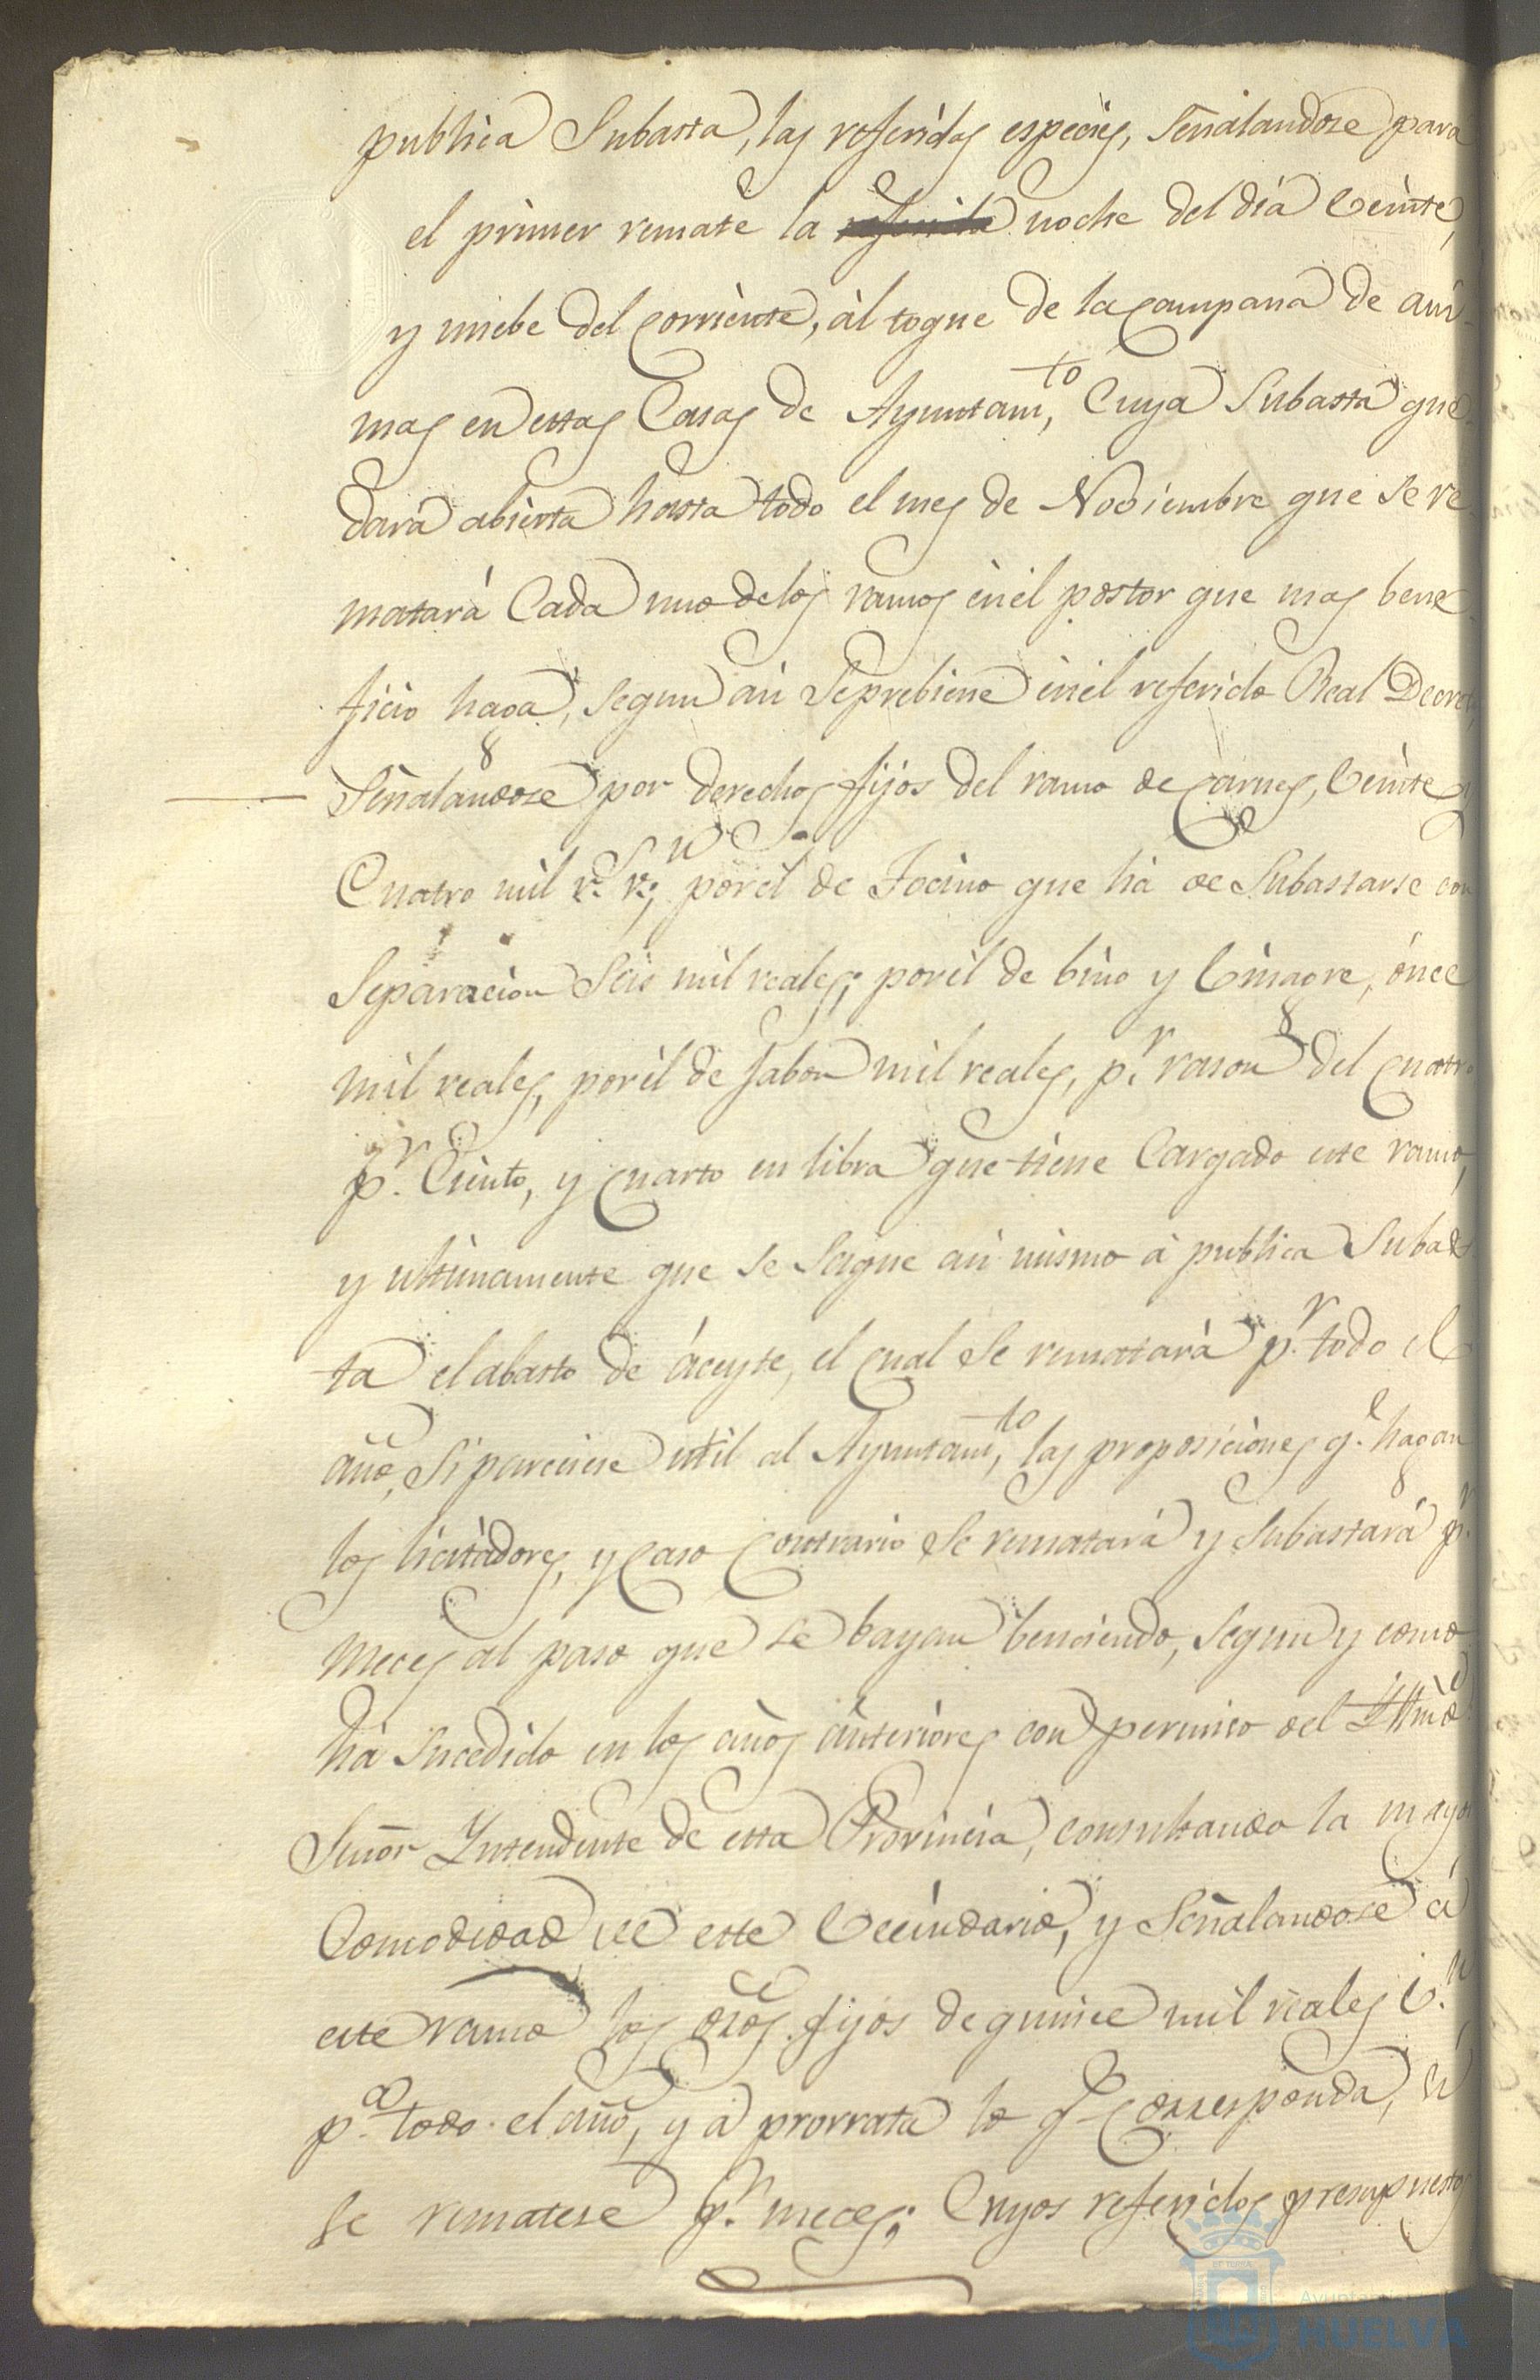 publica Subasta, las referidas especies, señalandose para
el primer remate la referida noche del dia Veinte,
y nuebe del Corriente, al toque de la Campana de ani-
mas en estas Casas de Ayuntam.to, Cuya Subasta que-
dará abierta hasta todo el mes de Noviembre que se re-
matará Cada uno de los ramos en el postor que mas bene-
ficio haga, segun asi se prebiene en el referido Real Decreto,
Señalandose por derechos fijos del ramo de Carnes, Veinte y
Cuatro mil r.s v.n; por el de Tocino que há de Subastarse con
Separacion Seis mil reales; por el de bino y Vinagre, once
mil reales, por el de Jabon mil reales, p.r rason del Cuatro
p.r Ciento, y Cuarto en libra que tiene Cargado este ramo,
y ultimamente que se saque asi mismo á publica Subas-
ta el abasto de áceyte, el Cual se rematará p.r todo el
año, si pareciese util al Ayuntam.to, las proposiciones q.e hagan
los licitadores, y Caso Contrario se rematará y Subastará p.r
meces al paso que se bayan benciendo, segun y como
há sucedido en los años ánteriores con permiso del Yllmo
Señor Yntendente de esta Provincia, consultando la mayor
Comodidad de este Vecindario, y Señalandose á
este ramo los dros fijos de quince mil reales v.n
p.a todo el año, y á prorrata lo q.e Corresponda, si
se rematese p.r meces; Cuyos referidos presupuestos
Ayuntamiento de
HUELVA